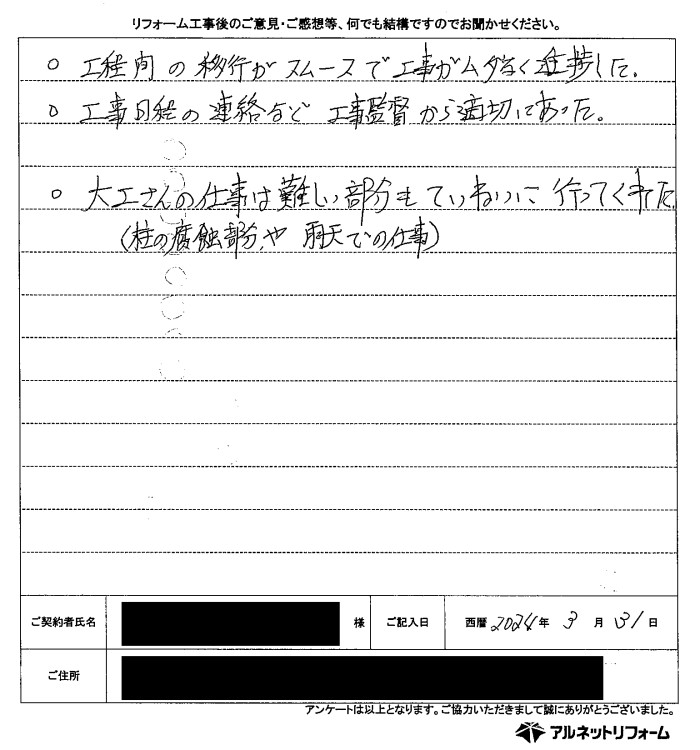 リフォーム工事後のご意見・ご感想等、何でも結構ですのでお聞かせください。
○ 工程間の移行がスムースで工事がムダなく進捗した.
○ 工事日程の連絡など 工事監督から適切にあった。
○ 大工さんの仕事は難しい部分もていねいに行ってくれた
(柱の腐蝕部分や 雨天での仕事)
ご契約者氏名 様 ご記入日 西暦 2024 年 3 月 31 日
ご住所
アンケートは以上となります。ご協力いただきまして誠にありがとうございました。
アルネットリフォーム